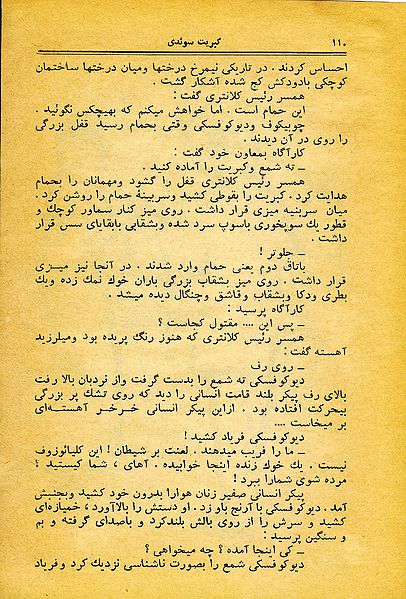 ۱۱۰ کبریت سوئدی
احساس کردند . در تاریکی نیمرخ درختها ومیان درختها ساختمان
کوچکی بادودکش کج شده آشکار گشت .
همسر رئیس کلانتری گفت :
این حمام است . اما خواهش میکنم که بهیچکس نگوئید .
چوبیکوف ودیوکوفسکی وقتی بحمام رسید قفل بزرگی
را روی در آن دیدند .
کارآگاه بمعاون خود گفت :
ــ ته شمع وکبریت را آماده کنید .
همسر رئیس کلانتری قفل را گشود ومهمانان را بحمام
هدایت کرد . کبریت را بقوطی کشید وسربینهٔ حمام را روشن کرد .
میان سربینه میزی قرار داشت . روی میز کنار سماور کوچك و
قطور یك سوپخوری باسوپ سرد شده وبشقابی بابقایای سس قرار
داشت .
ــ جلوتر !
باتاق دوم یعنی حمام وارد شدند . در آنجا نیز میـزی
قرار داشت . روی میز بشقاب بزرگی باران خوك نمك زده ویك
بطری ودکا وبشقاب وقاشق وچنگال دیده میشد .
کارآگاه پرسید :
ــ پس این .... مقتول کجاست ؟
همسر رئیس کلانتری که هنوز رنگ پریده بود ومیلرزید
آهسته گفت :
ــ روی رف
دیوکوفسکی ته شمع را بدست گرفت واز نردبان بالا رفت
بالای رف پیکر بلند قامت انسانی را دید که روی تشك پر بزرگی
بیحرکت افتاده بود . ازاین پیکر انسانی خرخر آهستـه‌ای
بر میخاست ....
دیوکوفسکی فریاد کشید !
ــ ما را فریب میدهند . لعنت بر شیطان ! این کلیائوزوف
نیست . یك خوك زنده اینجا خوابیده . آهای ، شما کیستید ؛
مرده شوی شمارا ببرد !
پیکر انسانی صفیر زنان هوارا بدرون خود کشید وبجنبش
آمد . دیوکوفسکی با آرنج باو زد . او دستش را بالاآورد ، خمیازه‌ای
کشید و سرش را از روی بالش بلندکرد و باصدای گرفته و بم
و سنگین پرسید :
ــ کی اینجا آمده ؟ چه میخواهی ؟
دیوکوفسکی شمع را بصورت ناشناسی نزدیك کرد وفریاد